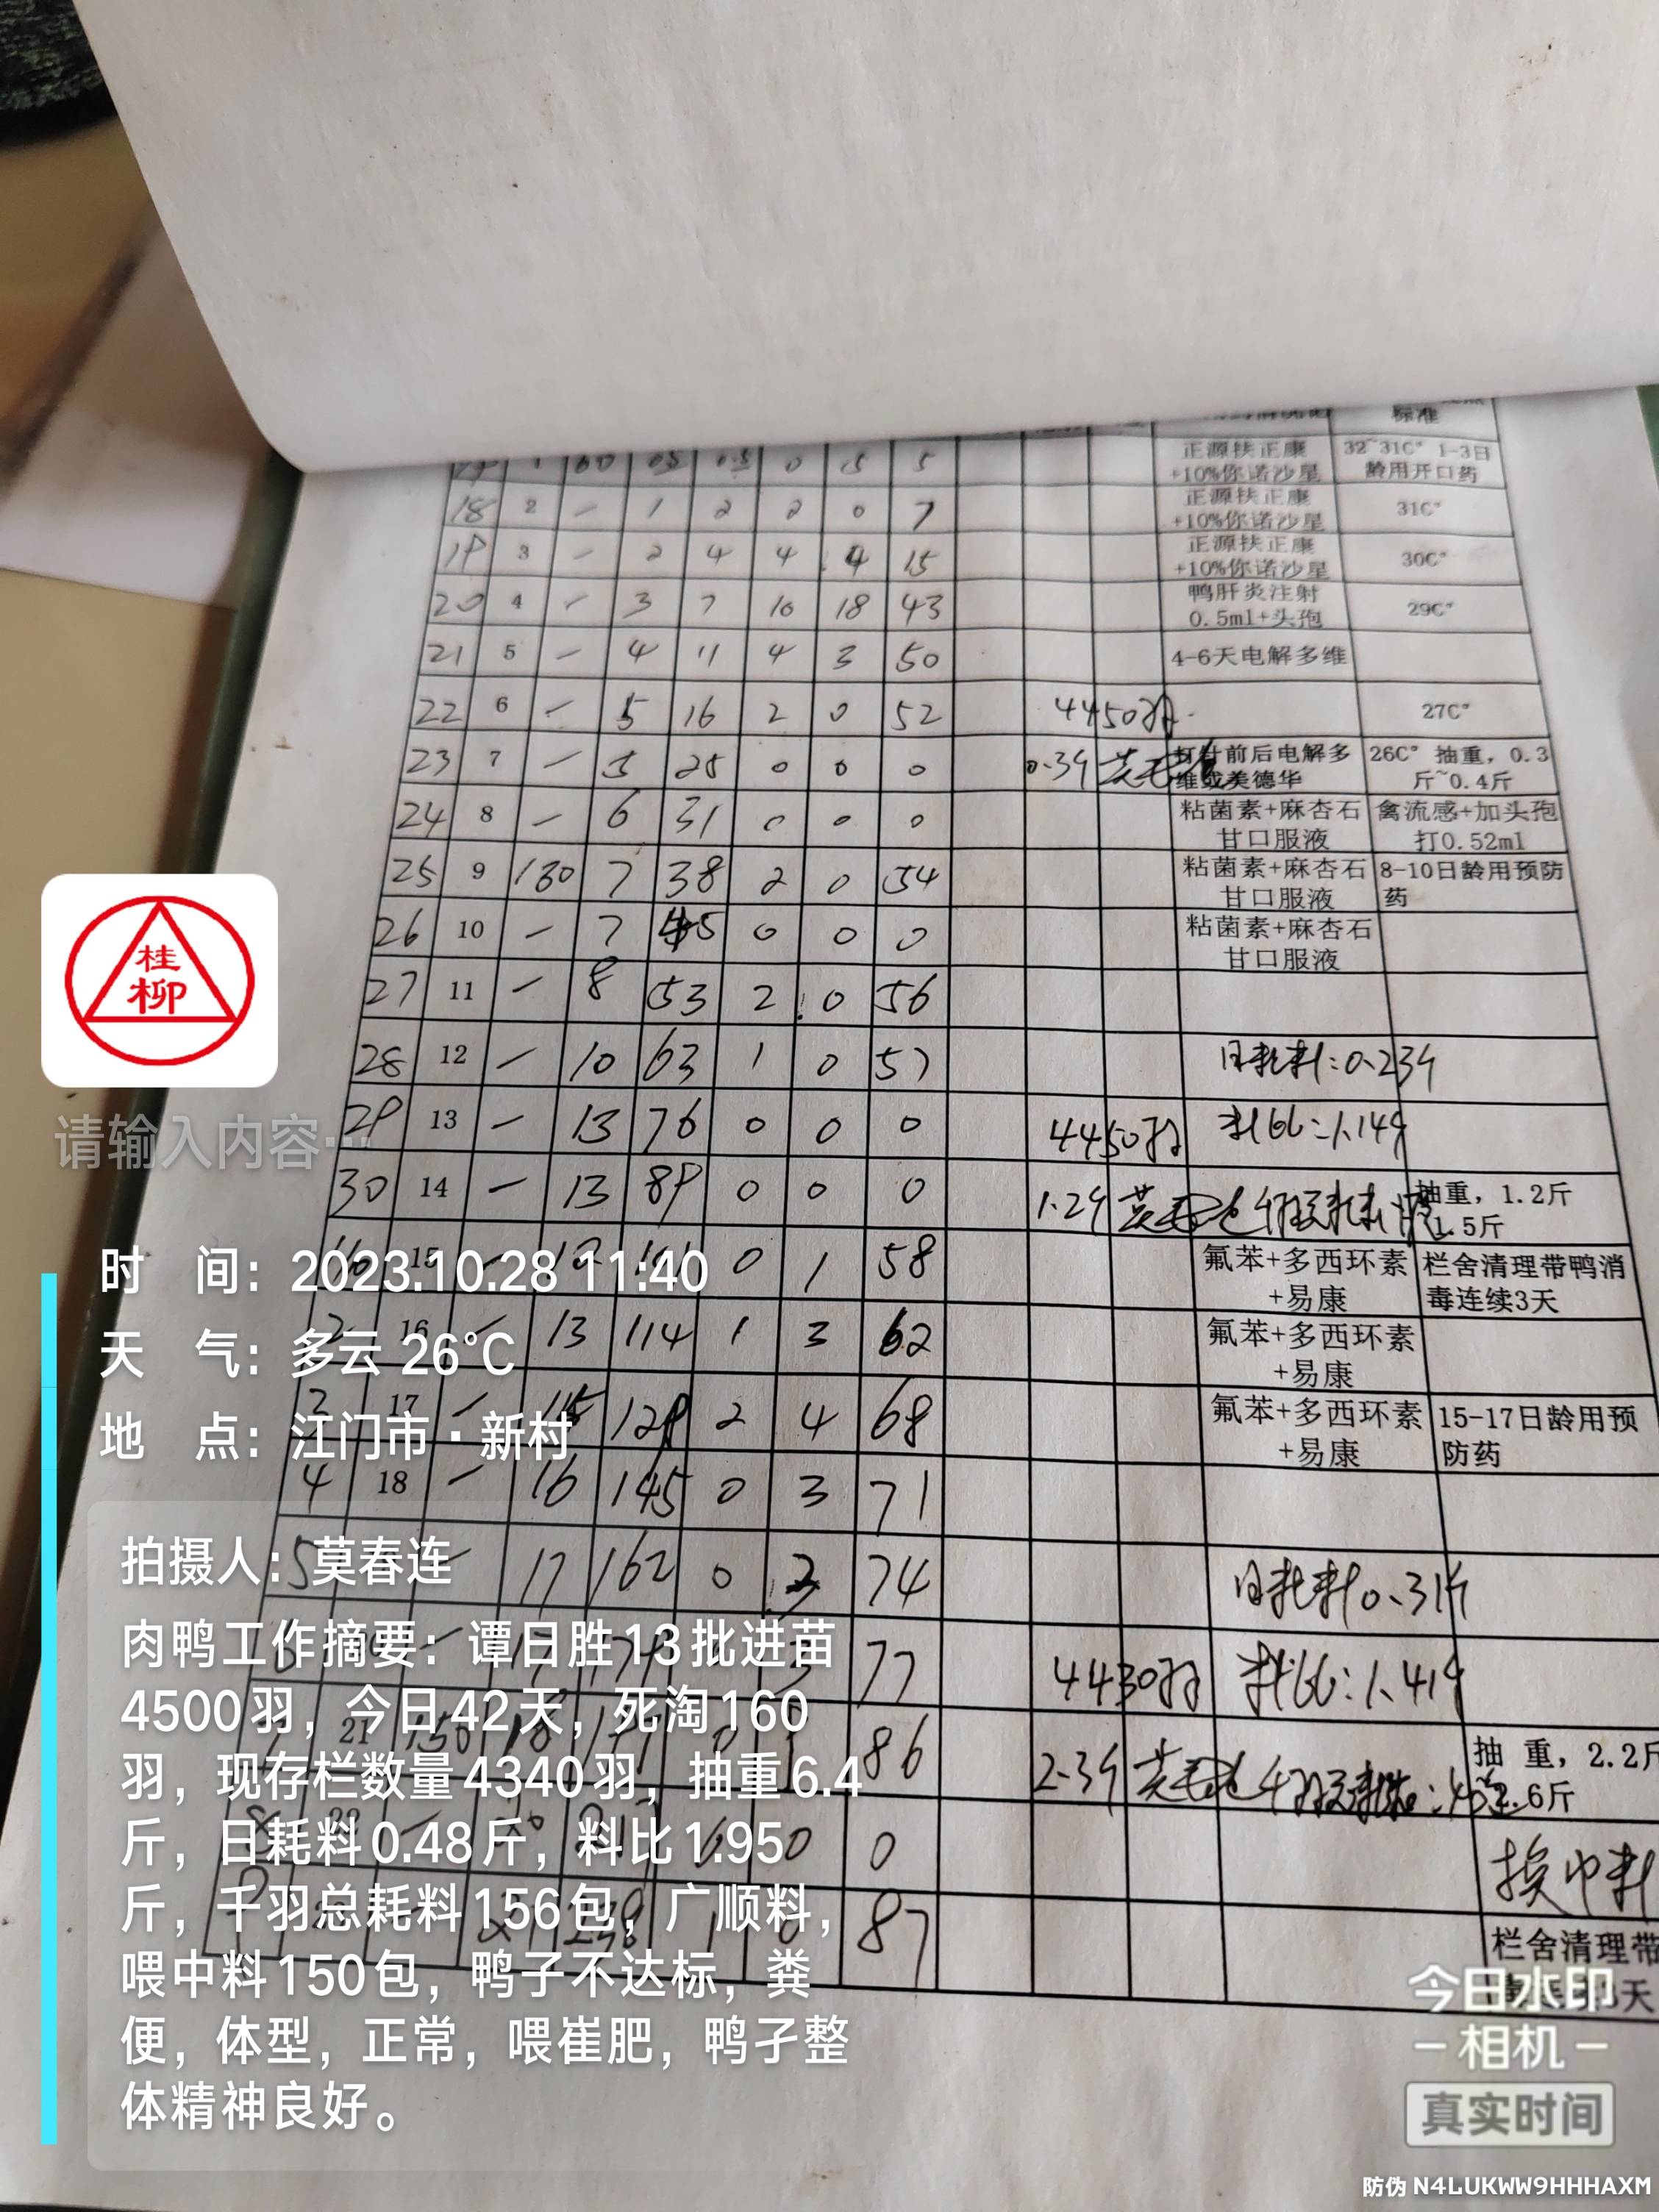 标准
1 60 0.5 0.5 0 5 5 正源扶正康 32~31C° 1-3日
+10%你诺沙星 龄用开口药
18 2 — 1 2 2 0 7 正源扶正康 31C°
+10%你诺沙星
19 3 — 2 4 4 4 15 正源扶正康 30C°
+10%你诺沙星
20 4 — 3 7 10 18 43 鸭肝炎注射 29C°
0.5ml+头孢
21 5 — 4 11 4 3 50 4-6天电解多维
22 6 — 5 16 2 0 52 4450羽 27C°
23 7 — 5 25 0 0 0 0.3斤 打针前后电解多 26C° 抽重，0.3
维或美德华 斤~0.4斤
24 8 — 6 31 0 0 0 粘菌素+麻杏石 禽流感+加头孢
甘口服液 打0.52ml
25 9 130 7 38 2 0 54 粘菌素+麻杏石 8-10日龄用预防
甘口服液 药
26 10 — 7 45 0 0 0 粘菌素+麻杏石
甘口服液
27 11 — 8 53 2 0 56
28 12 — 10 63 1 0 57 日耗料:0.23斤
29 13 — 13 76 0 0 0 4450羽 料比:1.14斤
30 14 — 13 89 0 0 0 1.2斤 抽重，1.2斤
1.5斤
15 — 0 1 58 氟苯+多西环素 栏舍清理带鸭消
+易康 毒连续3天
2 16 — 13 114 1 3 62 氟苯+多西环素
+易康
3 17 — 15 129 2 4 68 氟苯+多西环素 15-17日龄用预
+易康 防药
4 18 — 16 145 0 3 71
5 — 17 162 0 3 74 日耗料0.31斤
6 — 17 179 3 77 4430羽 料比:1.41斤
21 150 18 86 2.3斤 抽 重，2.2斤
2.6斤
8 22 — 0 0 换中料
238 1 0 87 栏舍清理带
桂
柳
请输入内容…
时 间：2023.10.28 11:40
天 气：多云 26°C
地 点：江门市·新村
拍摄人：莫春连
肉鸭工作摘要：谭日胜13批进苗
4500羽，今日42天，死淘160
羽，现存栏数量4340羽，抽重6.4
斤，日耗料0.48斤，料比1.95
斤，千羽总耗料156包，广顺料，
喂中料150包，鸭子不达标，粪
便，体型，正常，喂崔肥，鸭孑整
体精神良好。
今日水印
-相机-
真实时间
防伪 N4LUKWW9HHHAXM